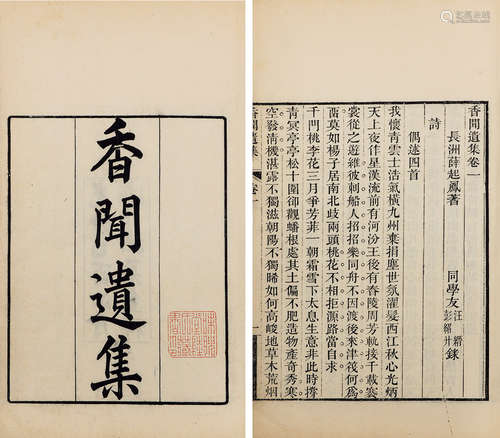 香聞遺集
香聞遺集卷一
長洲薛起鳳著 同學友 汪縉 彭紹升 錄
詩
偶述四首
我懷青雲士活氣橫九州棄捐塵世氛濯髮西江秋心光炳
天上夜作星漢流前有河汾王後有舂陵周芳軌接千載褰
裳從之遊維彼刺船人招招樂同舟不因渡後來津筏何爲
畱莫如楊子居南北歧兩頭桃花不相拒源路當自求
千門桃李花三月爭芳菲一朝霜雪下太息生意非此時撐
青冥亭亭松十圍卻觀蟠根處其土偏不肥造物產奇秀寒
空發清機湛露不獨滋朝陽不獨晞如何高峻地草木荒烟
香聞遺集
卷一
一